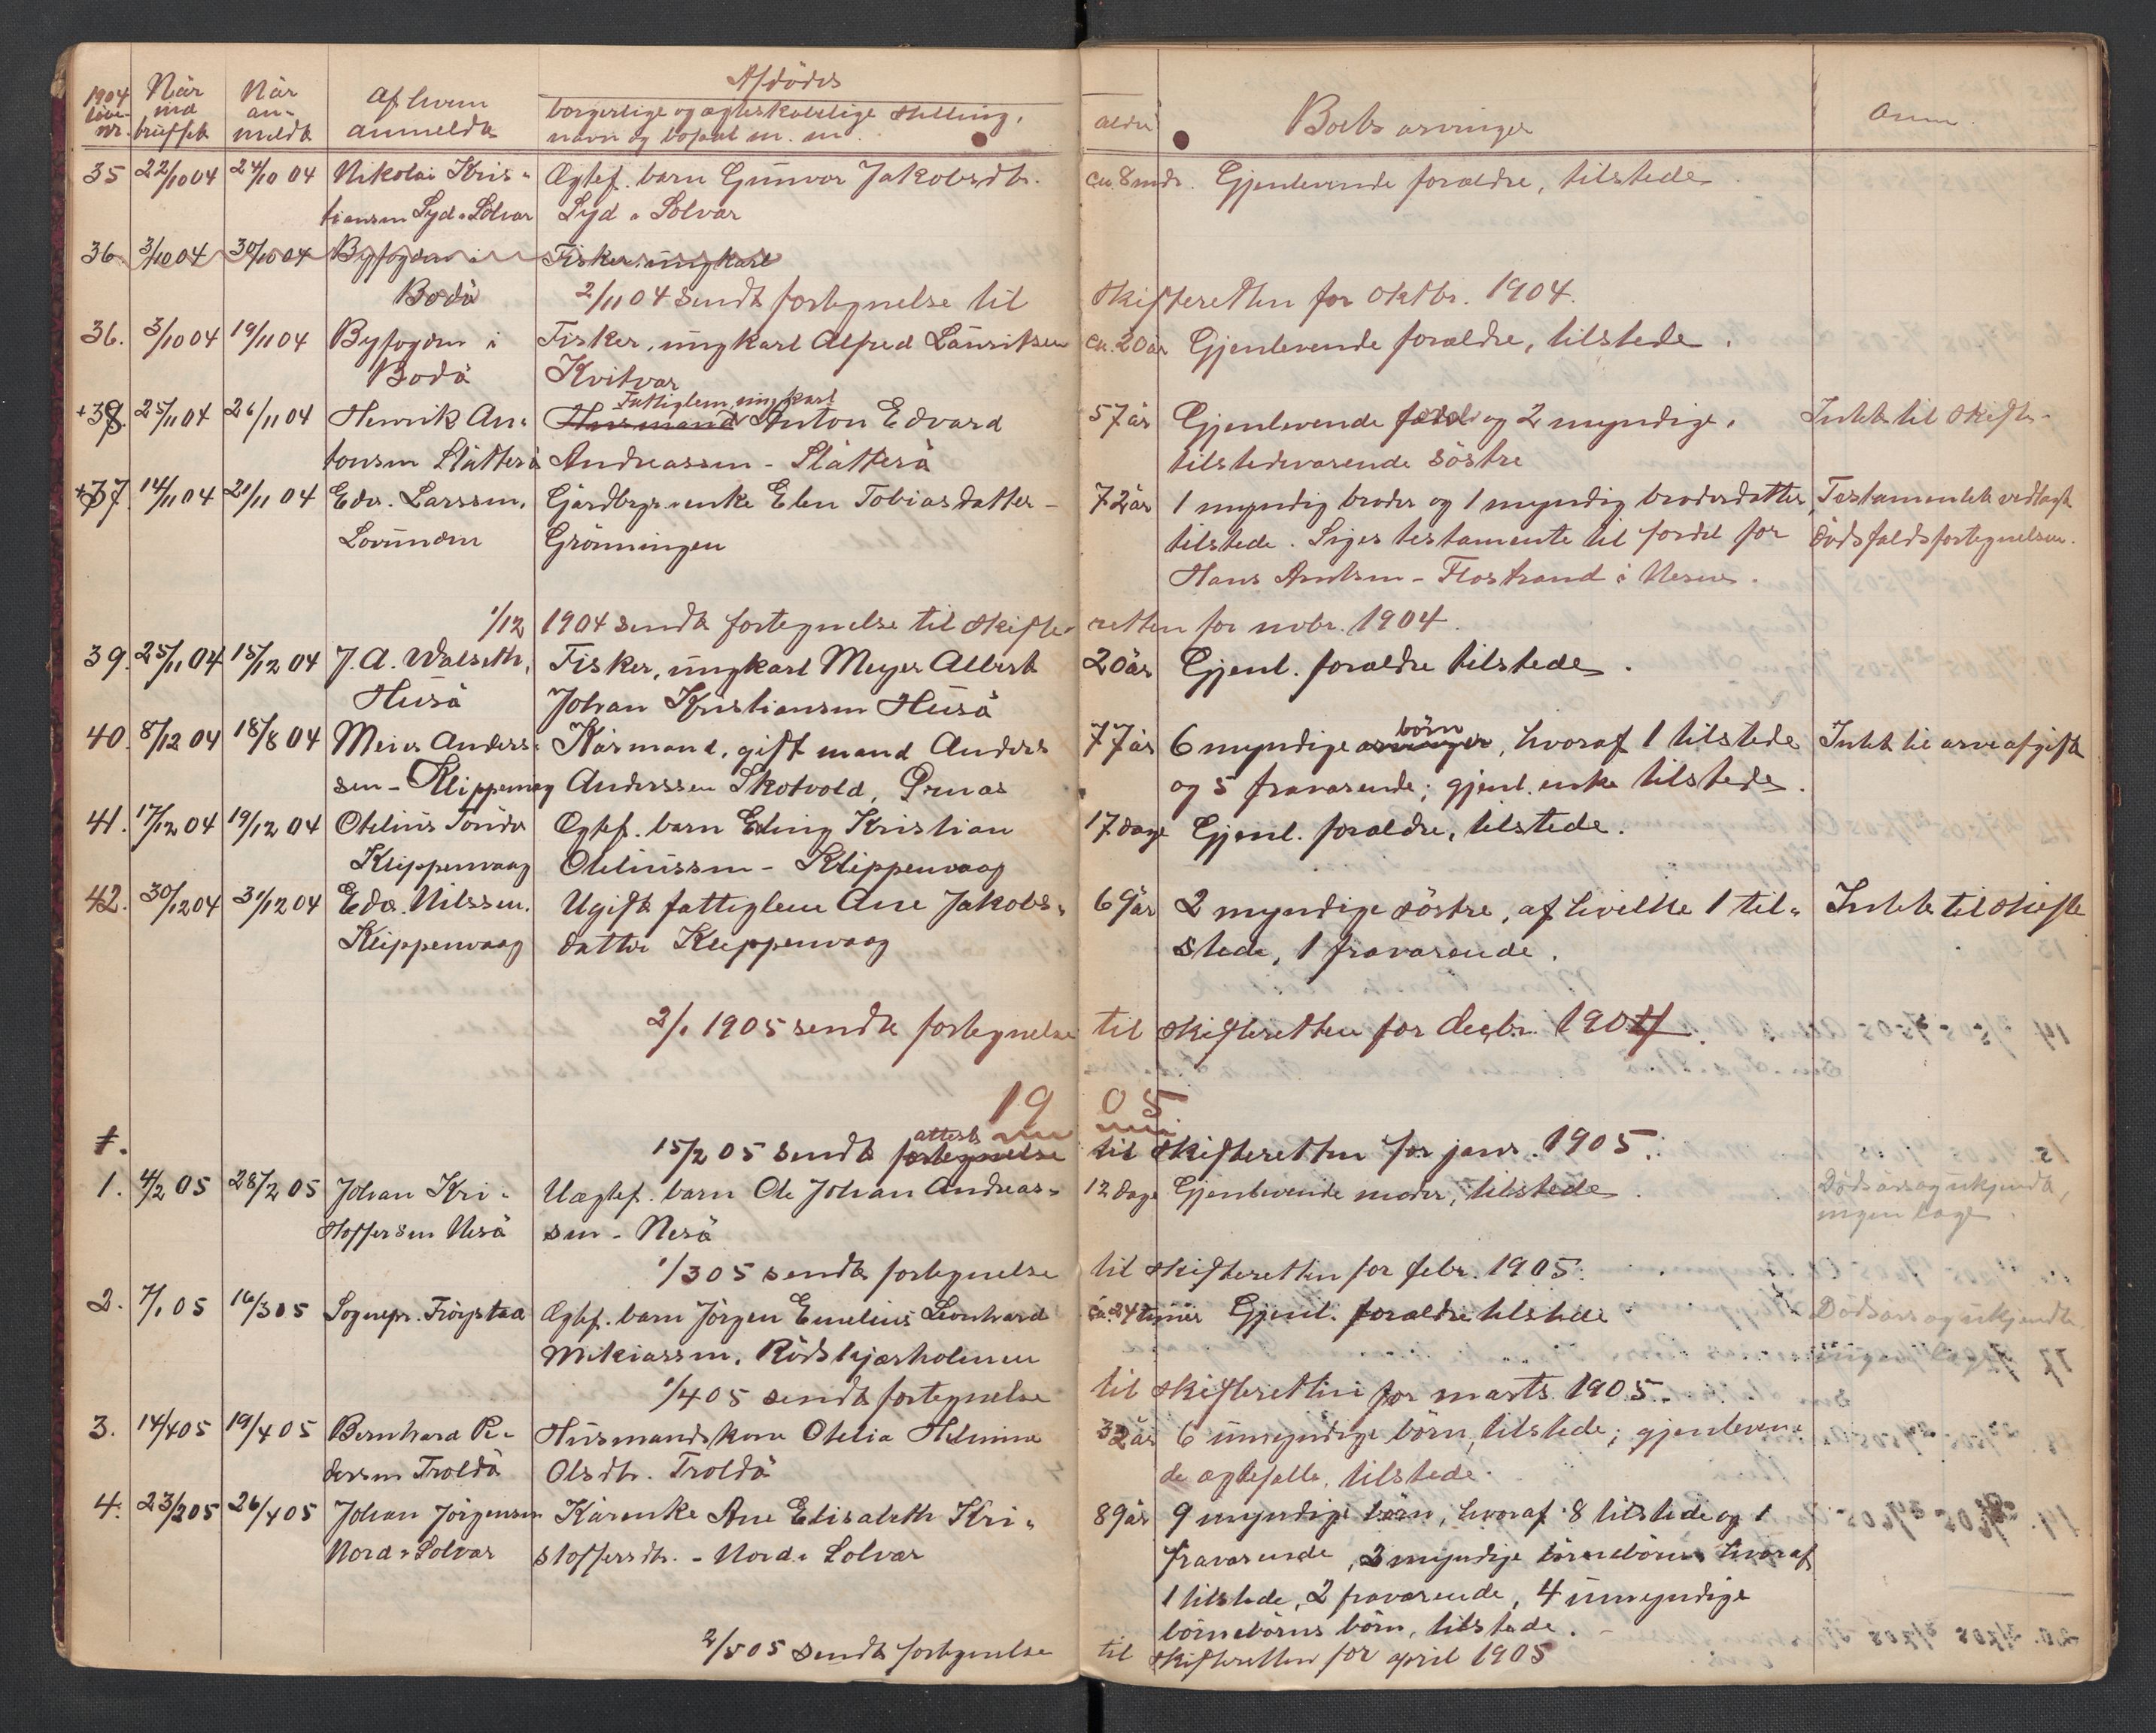 1904 Når Når Af hvem Afdødes
løbe- ind an- anmeldt borgerlige og ægteskabelige stilling, alder Boets arvinger Anm.
nr. truffet meldt navn og bopæl m. m.
35 22/10 04 24/10 04 Nikolai Kris- Ægtef. barn Gunvor Jakobsdtr. ca. 8 mdr. Gjenlevende forældre, tilstede.
tiansen Syd-Solvær Syd-Solvær
36. 3/10 04 30/10 04 Byfogden i Fisker, ungkarl
Bodö 2/11 04 sendt fortegnelse til skifteretten for oktbr. 1904.
36. 3/10 04 19/11 04 Byfogden i Fisker, ungkarl Alfred Lauritsen ca. 20 år Gjenlevende forældre, tilstede.
Bodö Kvitvær
Fattiglem, ungkarl
+38. 25/11 04 26/11 04 Henrik An- Husmand Anton Edvard 57 år Gjenlevende og 2 myndige, Intet til skifte-
tonsen Slåtterö Andreassen - Slåtterö tilstedeværende söstre
+37. 14/11 04 21/11 04 Edv. Larssen, Gårdbrgr.enke Elen Tobiasdatter - 72 år 1 myndig broder og 1 myndig broderdatter, Testamentet vedlagt
Lovunden Grönningen tilstede. Siges testamente til fordel for dödsfaldsfortegnelsen.
Hans Arntsen - Flostrand i Nesne.
1/12 1904 sendt fortegnelse til skifte- retten for novbr. 1904.
39. 25/11 04 15/12 04 J. A. Walseth, Fisker, ungkarl Meyer Albert 20 år Gjenl. forældre tilstede.
Husö Johan Kristiansen Husö
börn
40. 8/12 04 18/8 04 Meier Anders- Kårmand, gift mand Anders 77 år 6 myndige arvinger, hvoraf 1 tilstede Intet til arveafgift
sen - Klippenvåg Anderssen Skotvold, og 5 fraværende; gjenl. enke tilstede.
41. 17/12 04 19/12 04 Otelius Tönder Ægtef. barn Edling Kristian 17 dage Gjenl. forældre, tilstede.
Klippenvaag Oteliussen - Klippenvaag
42. 30/12 04 31/12 04 Edv. Nilssen. Ugift fattiglem Ane Jakobs- 69 år 2 myndige söstre, af hvilke 1 til- Intet til skifte
Klippenvaag datter Klippenvaag stede, 1 fraværende.
2/1 1905 sendt fortegnelse til skifteretten for decbr. 1904.
1905
attest
1. 15/2 05 sendt fortegnelse til skifteretten for janr. 1905.
1. 4/2 05 28/2 05 Johan Kri- Uægtef. barn Ole Johan Andreas- 12 dage Gjenlevende moder, tilstede. Dödsårsag ukjendt,
stoffersen Nesö sen - Nesö ingen læge.
1/3 05 sendt fortegnelse til skifteretten for febr. 1905.
2. 7/1 05 16/3 05 Sognepr. Fröystad Ægtef. barn Jörgen Emelius Leonhard ca. 24 timer Gjenl. forældre tilstede Dödsårsag ukjendt.
Mikiassen. Rödskjærholmen ingen læge
1/4 05 sendt fortegnelse til skifteretten for marts 1905.
3. 14/4 05 19/4 05 Bernhard Pe- Husmandskone Otelia Helmine 32 år 6 umyndige börn, tilstede; gjenleven-
dersen Troldö Olsdtr. Troldö de ægtefælle, tilstede.
4. 23/2 05 26/4 05 Johan Jörgensen Kårenke Ane Elisabeth Kri- 89 år 9 myndige börn, hvoraf 8 tilstede og 1
Nord-Solvær stoffersdtr. - Nord-Solvær fraværende, 3 myndige börnebörn hvoraf
1 tilstede, 2 fraværende, 4 umyndige
börnebörns börn, tilstede.
2/5 05 sendt fortegnelse til skifteretten for april 1905